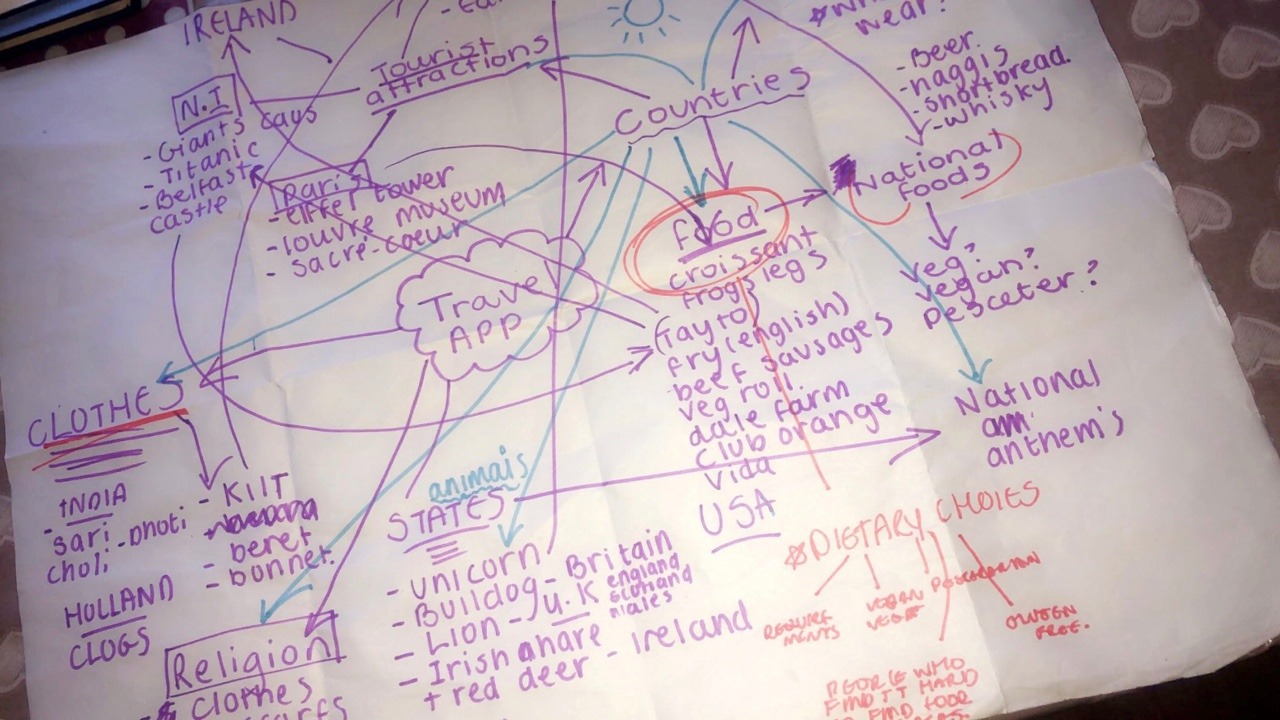 IRELAND
Tourist
attractions
wear?
N.I
- Giants caus
- Titanic
- Belfast
castle
Paris
- eiffel tower
- louvre museum
- sacré-coeur
Countries
- Beer
- haggis
- shortbread.
- whisky
National
foods
veg?
vegan?
pesceter?
food
croissant
frogs legs
(Tayto)
fry (english)
beef sausages
veg roll
dale farm
club orange
vida
USA
Travel
APP
National
am
anthem's
CLOTHES
INDIA
- sari - Dhoti
choli
HOLLAND
CLOGS
- KIlT
- beret
- bonnet
animals
STATES
- UNICORN
- Bulldog - Britain
- Lion - U.K england
scotland
Wales
- Irish ahare
+ red deer - Ireland
Religion
clothes
DIETARY CHOIES
REQUIRE
MENTS
VEGAN
VEGGE
GLUTEN
FREE.
PEOPLE WHO
FIND IT HARD
TO FIND FOOD